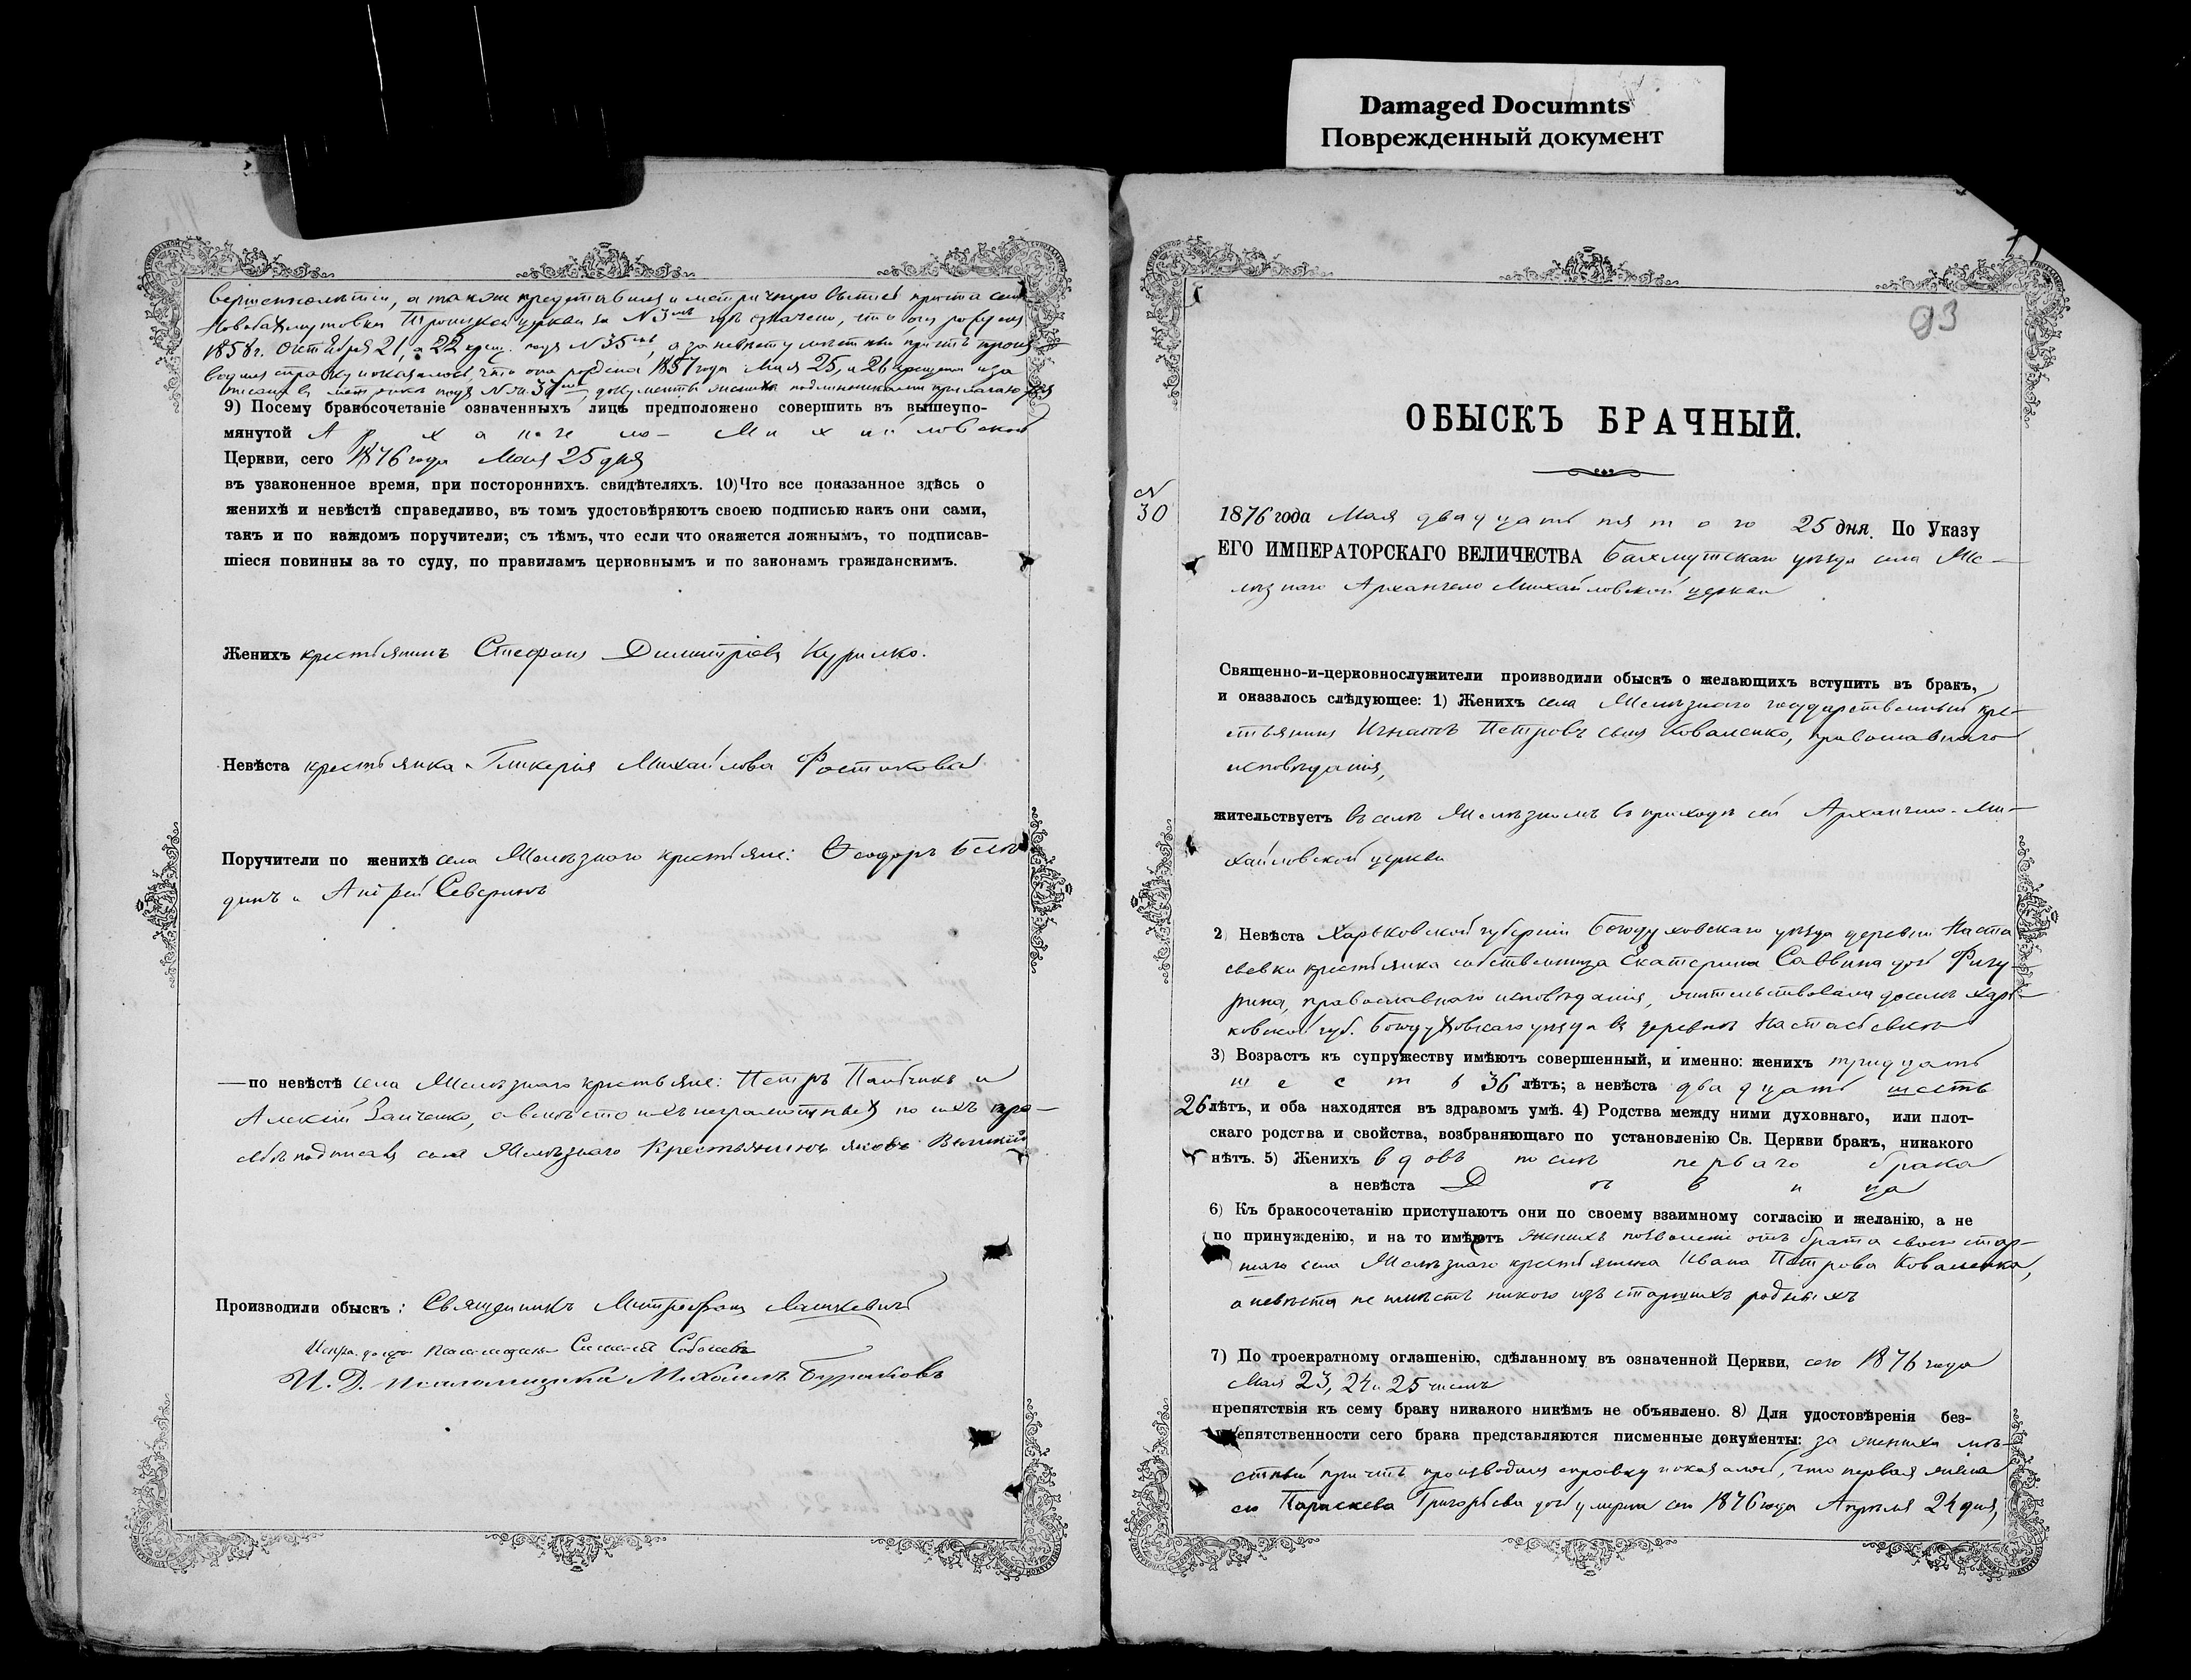 Damaged Documnts
Поврежденный документ
а также представилъ и метрическую
Новобахмутовки Троицкой церкви за № 3мъ гдѣ означено, что онъ рожденъ
1858 г. Октября 21, а 22 крещ. подъ № 35мъ, а за невѣсту мѣстный причтъ произ
водилъ справку и оказалось, что она рождена 1857 года Мая 25, и 26 крещена и за
писана въ подъ № документы жениха подлинниками прилагаются
9) Посему бракосочетаніе означенныхъ лицъ предположено совершить въ вышеупо-
мянутой Архангело-Михайловской
Церкви, сего 1876 года Мая 25 дня
въ узаконенное время, при постороннихъ. свидѣтеляхъ. 10) Что все показанное здѣсь о
женихѣ и невѣстѣ справедливо, въ томъ удостовѣряютъ своею подписью какъ они сами,
такъ и по каждомъ поручители; съ тѣмъ, что если что окажется ложнымъ, то подписав-
шіеся повинны за то суду, по правиламъ церковнымъ и по законамъ гражданскимъ.
Женихъ крестьянинъ Стефанъ Димитріевъ Курилко.
Невѣста крестьянка Гликерія Михайлова
Поручители по женихѣ села Желѣзнаго крестьяне: Ѳеодоръ
и Андрей Северинъ
—по невѣстѣ села Желѣзнаго крестьяне: Петръ и
Алексѣй Зайченко, а вмѣсто ихъ неграмотныхъ по ихъ про-
сьбѣ подписалъ села Желѣзнаго Крестьянинъ Яковъ
Производили обыскъ: Священникъ Митрофанъ
Испра. долж. Псаломщика
И. Д. псаломщика Михаилъ
93
ОБЫСКЪ БРАЧНЫЙ.
N
30
1876 года Мая двадцать пятого 25 дня. По Указу
ЕГО ИМПЕРАТОРСКАГО ВЕЛИЧЕСТВА Бахмутскаго уѣзда села Же-
лѣзнаго Архангело Михайловской церкви
Священно-и-церковнослужители производили обыскъ о желающихъ вступить въ бракъ,
и оказалось слѣдующее: 1) Женихъ села Желѣзнаго государственный кре-
стьянинъ Игнатъ Петровъ сынъ Коваленко, православнаго
исповѣданія,
жительствуетъ въ селѣ Желѣзномъ въ приходѣ сей Архангело-Ми-
хайловской церкви
2) Невѣста Харьковской губерніи Богодуховскаго уѣзда деревни Наста
сьевки крестьянка собственница Екатерина Саввина дочь Фигу-
рина, православнаго исповѣданія, жительствовала доселѣ Харь-
ковской губ. Богодуховскаго уѣзда въ деревнѣ Настасьевкѣ
3) Возрастъ къ супружеству имѣютъ совершенный, и именно: женихъ тридцать
шесть 36 лѣтъ; а невѣста двадцать шесть
26 лѣтъ, и оба находятся въ здравомъ умѣ. 4) Родства между ними духовнаго, или плот-
скаго родства и свойства, возбраняющаго по установленію Св. Церкви бракъ, никакого
нѣтъ. 5) Женихъ вдовъ послѣ перваго брака
а невѣста Дѣвица
6) Къ бракосочетанію приступаютъ они по своему взаимному согласію и желанію, а не
по принужденію, и на то имѣютъ женихъ позволеніе отъ брата своего стар-
шаго села Желѣзнаго крестьянина Ивана Петрова Коваленка,
а невѣста не имѣетъ никого изъ старшихъ родныхъ
7) По троекратному оглашенію, сдѣланному въ означенной Церкви, сего 1876 года
Мая 23, 24 и 25 числъ
препятствія къ сему браку никакого никѣмъ не объявлено. 8) Для удостовѣренія без-
препятственности сего брака представляются писменные документы: за жениха мѣ-
стный причтъ производилъ справку и оказалось, что первая жена
его Параскева Григорьева дочь умерла сего 1876 года Апрѣля 24 дня,